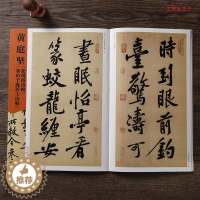 黄庭堅
時到眼前釣
臺驚濤可
晝眠怡亭看
篆蛟龍纏安
推荐